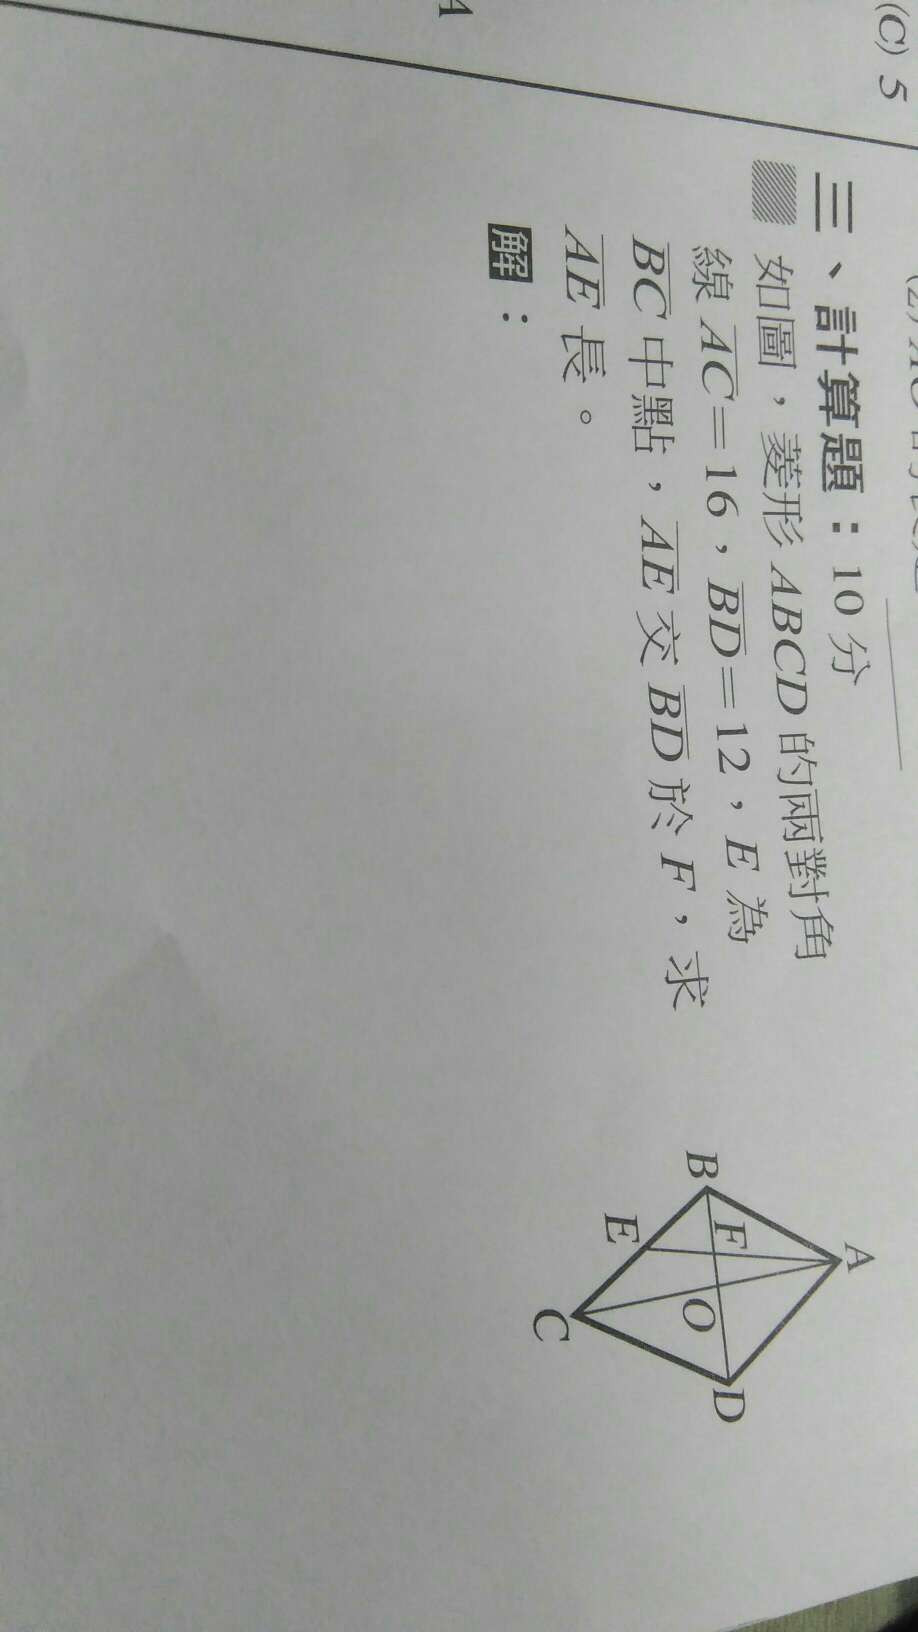 (C) 5
三、計算題：10 分
如圖，菱形 ABCD 的兩對角
線 AC＝16，BD＝12，E 為
BC 中點，AE 交 BD 於 F，求
AE 長。
解：
A
B
F
E
O
D
C